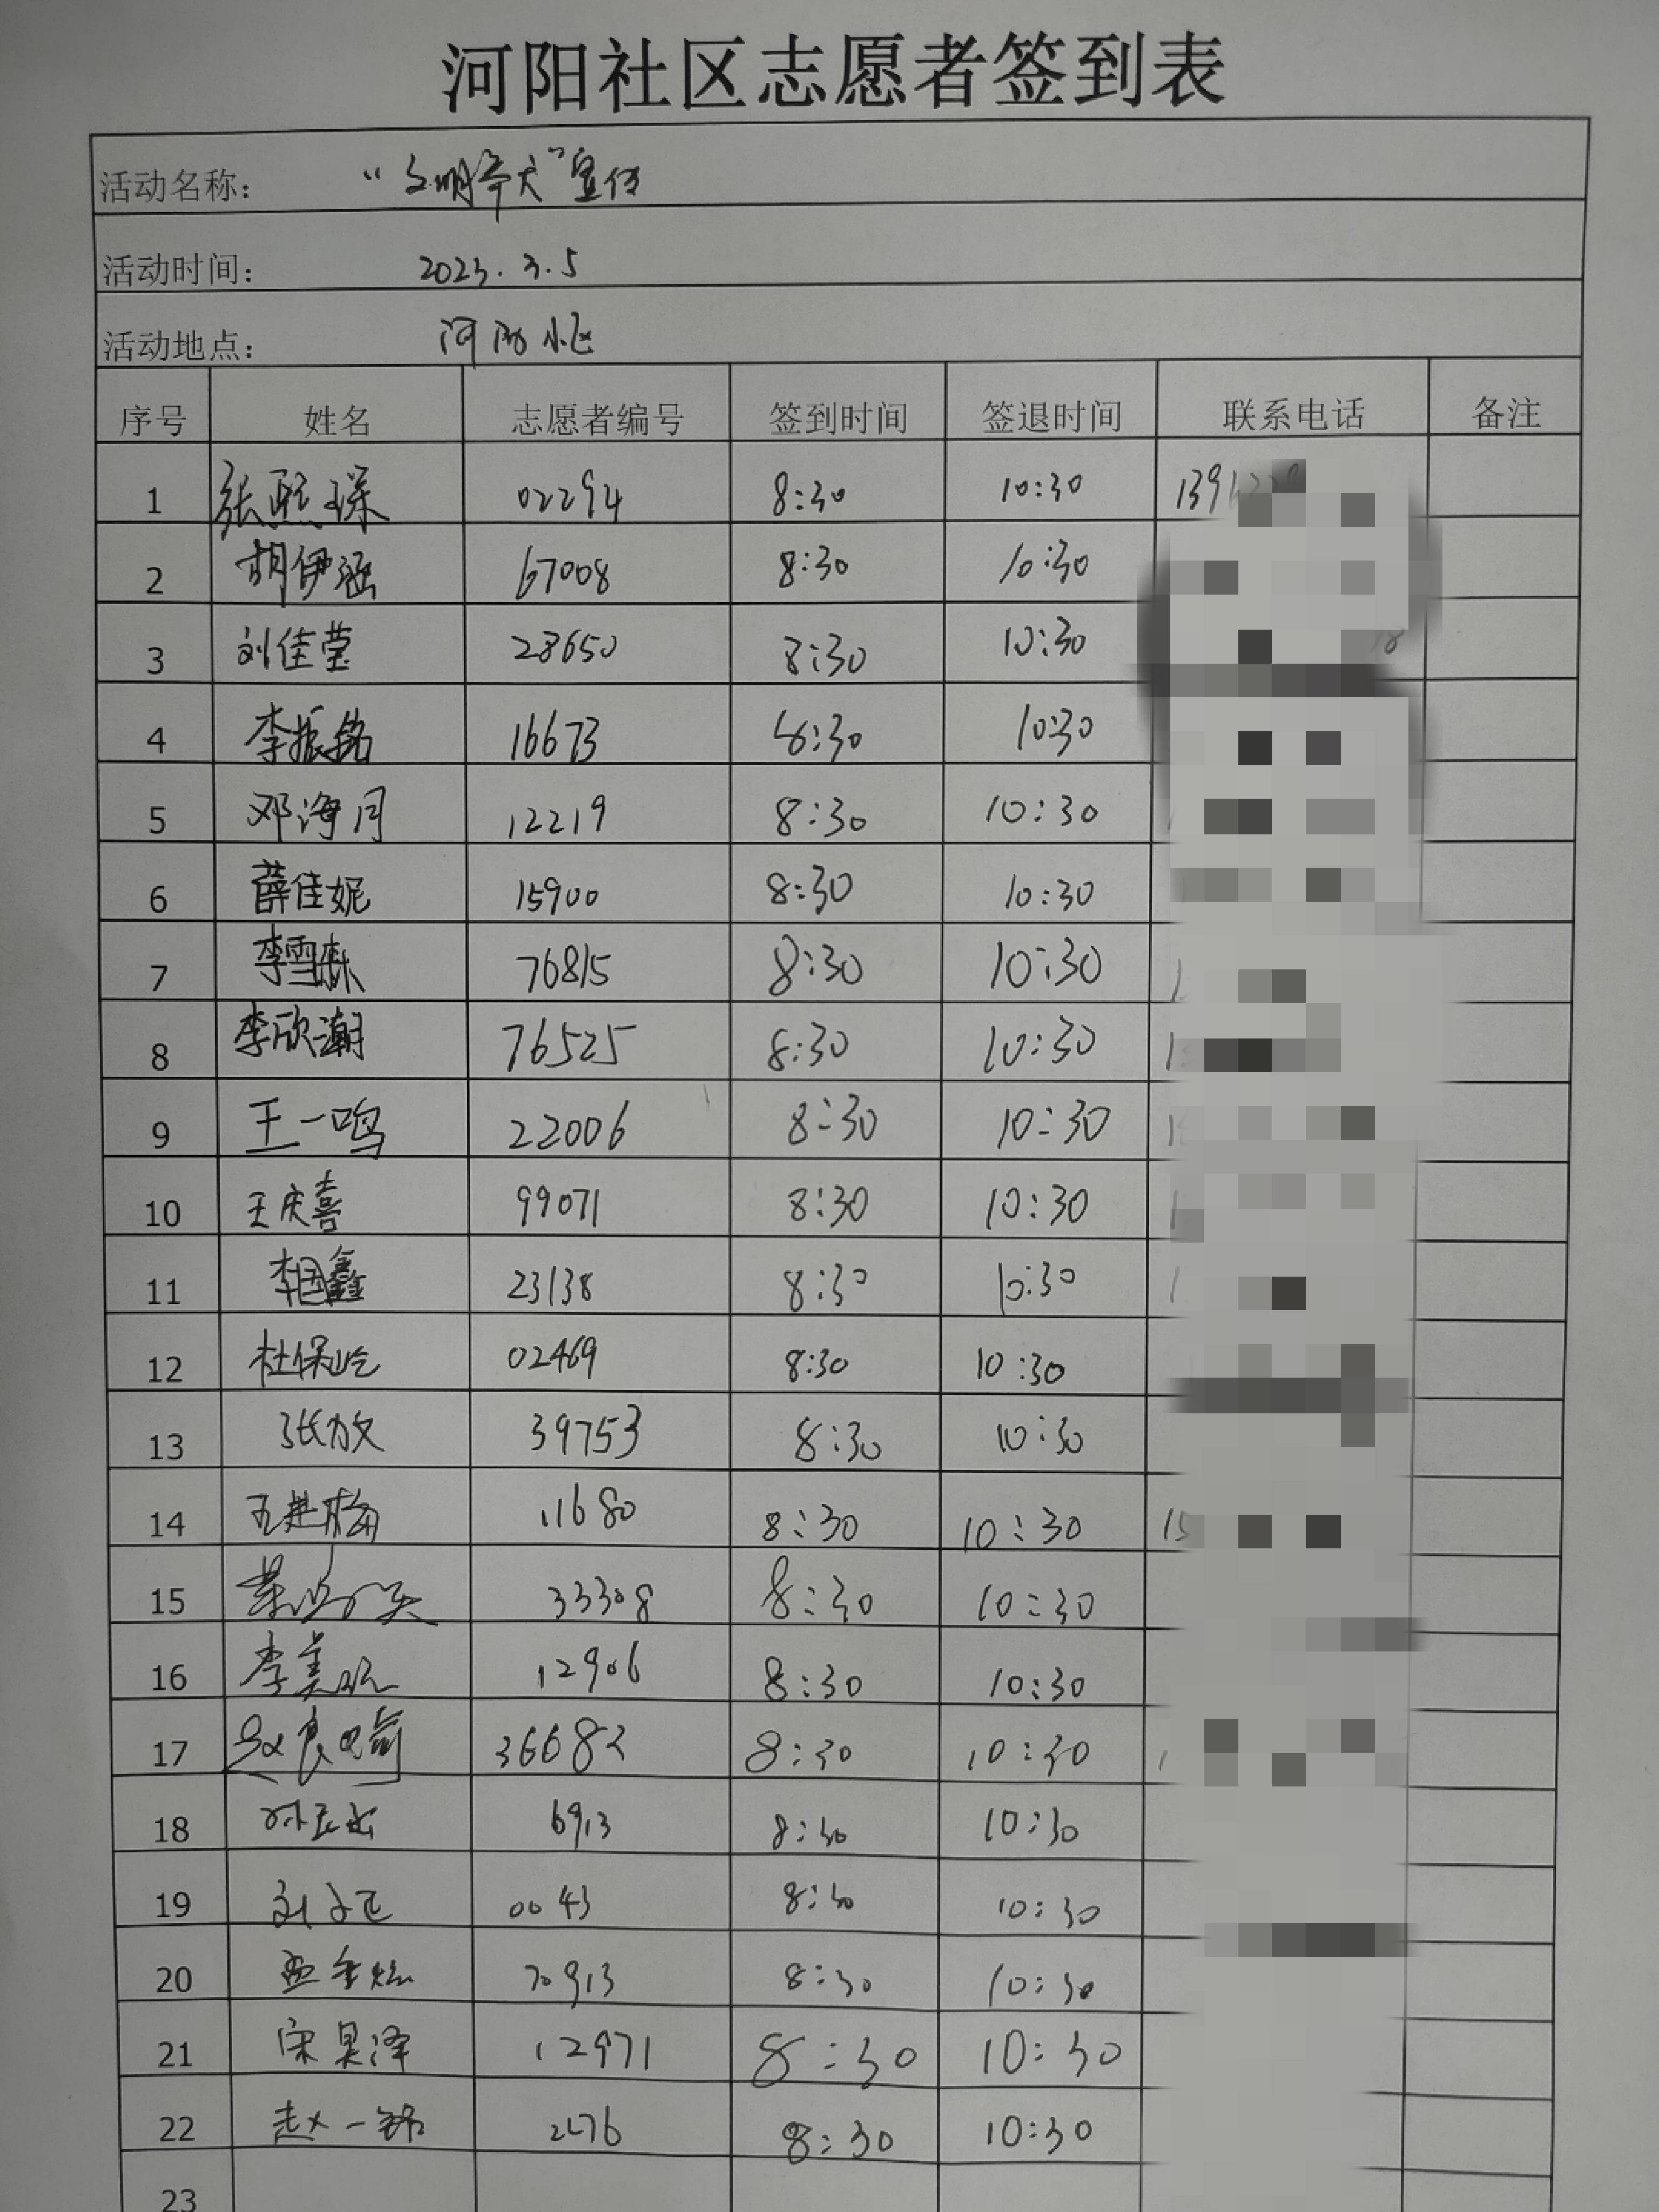 河阳社区志愿者签到表
活动名称： “文明养犬”宣传
活动时间： 2023.3.5
活动地点： 河阳小区
序号 姓名 志愿者编号 签到时间 签退时间 联系电话 备注
1 张熙琛 02294 8:30 10:30
2 胡伊涵 67008 8:30 10:30
3 刘佳莹 28650 8:30 10:30
4 李振铭 16673 8:30 10:30
5 邓海月 12219 8:30 10:30
6 薛佳妮 15900 8:30 10:30
7 李雪 76815 8:30 10:30
8 李欣潮 76525 8:30 10:30
9 王一鸣 22006 8:30 10:30
10 王庆喜 99071 8:30 10:30
11 李国鑫 23138 8:30 10:30
12 杜保屹 02469 8:30 10:30
13 张放 39753 8:30 10:30
14 11680 8:30 10:30 15
15 33308 8:30 10:30
16 李美 12906 8:30 10:30
17 36682 8:30 10:30
18 6913 8:30 10:30
19 刘 0043 8:30 10:30
20 70913 8:30 10:30
21 宋昊泽 12971 8:30 10:30
22 赵一铭 2476 8:30 10:30
23